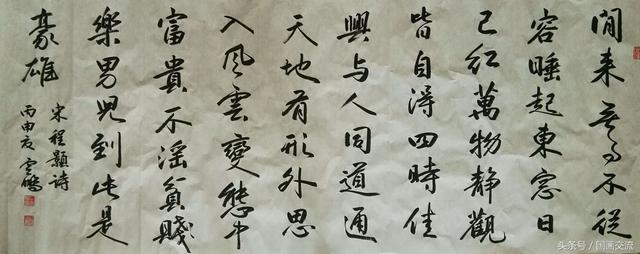 閒来無事不從
容睡起東窓日
已紅萬物静觀
皆自得四時佳
興与人同道通
天地有形外思
入風雲變態中
富貴不淫貧賤
樂男兒到此是
豪雄
宋程顥詩
丙申夏雲鵬
头条号 / 国画交流